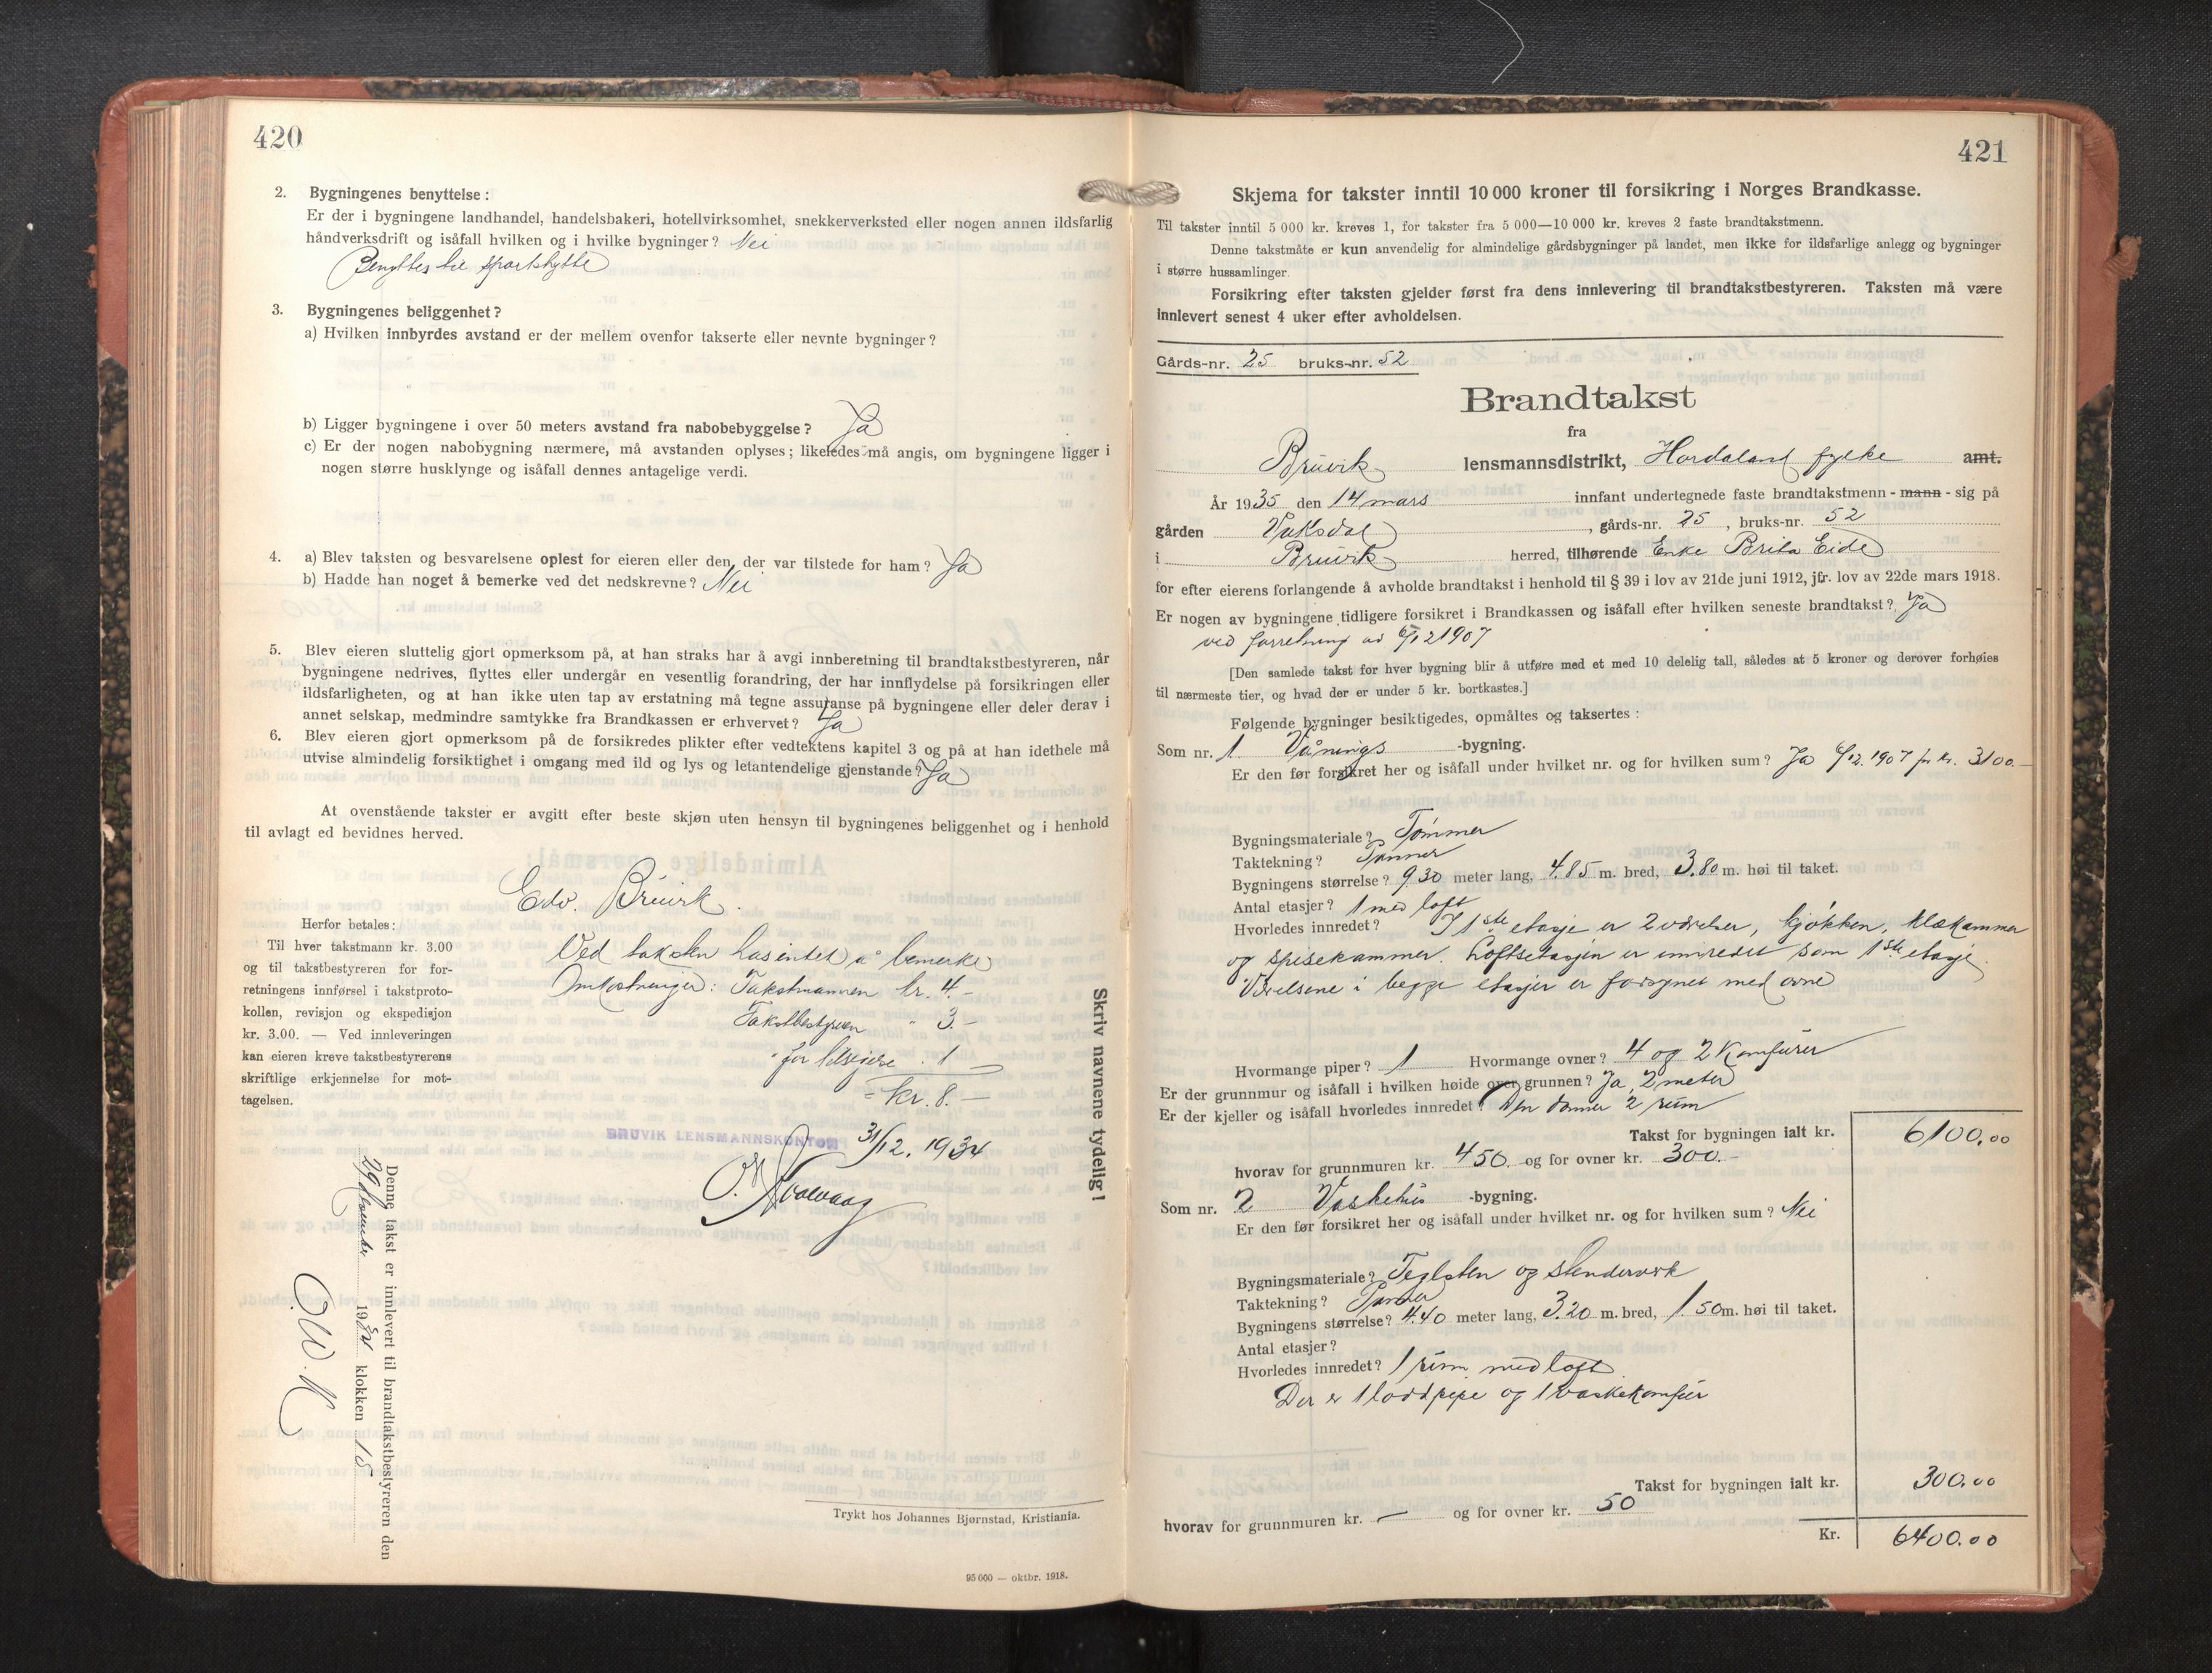 420
2. Bygningenes benyttelse:
Er der i bygningene landhandel, handelsbakeri, hotellvirksomhet, snekkerverksted eller nogen annen ildsfarlig
håndverksdrift og isåfall hvilken og i hvilke bygninger? Nei
Benyttes til sportshytte
3. Bygningenes beliggenhet?
a) Hvilken innbyrdes avstand er der mellem ovenfor takserte eller nevnte bygninger?
b) Ligger bygningene i over 50 meters avstand fra nabobebyggelse? Ja
c) Er der nogen nabobygning nærmere, må avstanden oplyses; likeledes må angis, om bygningene ligger i
nogen større husklynge og isåfall dennes antagelige verdi.
4. a) Blev taksten og besvarelsene oplest for eieren eller den, der var tilstede for ham? Ja
b) Hadde han noget å bemerke ved det nedskrevne? Nei
5. Blev eieren sluttelig gjort opmerksom på, at han straks har å avgi innberetning til brandtakstbestyreren, når
bygningene nedrives, flyttes eller undergår en vesentlig forandring, der har innflydelse på forsikringen eller
ildsfarligheten, og at han ikke uten tap av erstatning må tegne assuranse på bygningene eller deler derav i
annet selskap, medmindre samtykke fra Brandkassen er erhvervet? Ja
6. Blev eieren gjort opmerksom på de forsikredes plikter efter vedtektens kapitel 3 og på at han idethele må
utvise almindelig forsiktighet i omgang med ild og lys og letantendelige gjenstande? Ja
At ovenstående takster er avgitt efter beste skjøn uten hensyn til bygningenes beliggenhet og i henhold
til avlagt ed bevidnes herved.
Edv. Bruvik.
Herfor betales:
Til hver takstmann kr. 3.00
og til takstbestyreren for for-
retningens innførsel i takstproto-
kollen, revisjon og ekspedisjon
kr. 3.00. — Ved innleveringen
kan eieren kreve takstbestyrerens
skriftlige erkjennelse for mot-
tagelsen.
Ved taksten has intet å bemerke
Omkostninger: Takstmannen kr. 4.-
Takstbestyreren " 3.-
" for 1
= kr. 8.—
BRUVIK LENSMANNSKONTOR 31/12. 1934
Skriv navnene tydelig!
Denne takst er innlevert til brandtakstbestyreren den
29 1934 klokken 15
O.W.K
Trykt hos Johannes Bjørnstad, Kristiania.
95 000 — oktbr. 1918.
421
Skjema for takster inntil 10 000 kroner til forsikring i Norges Brandkasse.
Til takster inntil 5 000 kr. kreves 1, for takster fra 5 000—10 000 kr. kreves 2 faste brandtakstmenn.
Denne takstmåte er kun anvendelig for almindelige gårdsbygninger på landet, men ikke for ildsfarlige anlegg og bygninger
i større hussamlinger.
Forsikring efter taksten gjelder først fra dens innlevering til brandtakstbestyreren. Taksten må være
innlevert senest 4 uker efter avholdelsen.
Gårds-nr. 25 bruks-nr. 52
Brandtakst
fra
Bruvik lensmannsdistrikt, Hordaland fylke amt.
År 1935 den 14 mars innfant undertegnede faste brandtakstmenn - mann - sig på
gården Vaksdal, gårds-nr. 25, bruks-nr. 52
i Bruvik herred, tilhørende Enke Brita Eide
for efter eierens forlangende å avholde brandtakst i henhold til § 39 i lov av 21de juni 1912, jfr. lov av 22de mars 1918.
Er nogen av bygningene tidligere forsikret i Brandkassen og isåfall efter hvilken seneste brandtakst? Ja
ved forretning av 6/12 1907
[Den samlede takst for hver bygning blir å utføre med et med 10 delelig tall, således at 5 kroner og derover forhøies
til nærmeste tier, og hvad der er under 5 kr. bortkastes.]
Følgende bygninger besiktigedes, opmåltes og taksertes:
Som nr. 1 Vånings -bygning.
Er den før forsikret her og isåfall under hvilket nr. og for hvilken sum? Ja 6/12. 1907 for kr. 3100.—
Bygningsmateriale? Tømmer
Taktekning? Panner
Bygningens størrelse? 9.30 meter lang, 4.85 m. bred, 3.80 m. høi til taket.
Antal etasjer? 1 med loft
Hvorledes innredet? I 1ste etasje er 2 værelser, kjøkken, klækammer
og spisekammer. Loftsetasjen er innredet som 1ste etasje
Værelsene i begge etasjer er forsynet med ovne
Hvormange piper? 1 Hvormange ovner? 4 og 2 Komfurer
Er der grunnmur og isåfall i hvilken høide over grunnen? Ja, 2 meter
Er der kjeller og isåfall hvorledes innredet? Den danner 2 rum
Takst for bygningen ialt kr. 6100.00
hvorav for grunnmuren kr. 450.- og for ovner kr. 300.-
Som nr. 2 Vaskehus -bygning.
Er den før forsikret her og isåfall under hvilket nr. og for hvilken sum? Nei
Bygningsmateriale? Teglsten og stenderverk
Taktekning? Panner
Bygningens størrelse? 4.40 meter lang, 3.20 m. bred, 1.50 m. høi til taket.
Antal etasjer?
Hvorledes innredet? 1 rum med loft
Der er 1 loddpipe og 1 vaskekomfur
Takst for bygningen ialt kr. 300.00
hvorav for grunnmuren kr. — og for ovner kr. 50
Kr. 6400.00